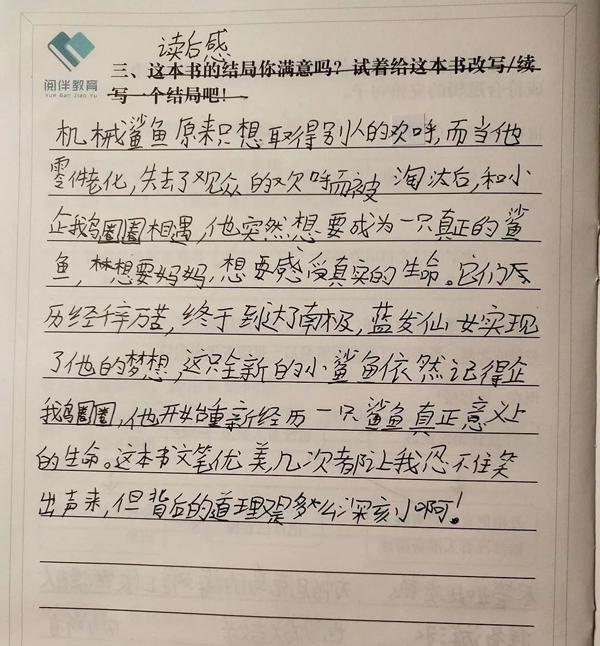 读后感
阅伴教育
Yue Ban Jiao Yu
三、这本书的结局你满意吗？试着给这本书改写/续
写一个结局吧！
机械鲨鱼原来只想取得别人的欢呼，而当他
零件老化，失去了观众的欢呼而被淘汰后，和小
企鹅圈圈相遇，他突然想要成为一只真正的鲨
鱼，想要妈妈，想要感受真实的生命。它们
历经千辛万苦，终于到达了南极，蓝发仙女实现
了他的梦想，这只全新的小鲨鱼依然记得企
鹅圈圈，他开始重新经历一只鲨鱼真正意义上
的生命。这本书文笔优美几次都让我忍不住笑
出声来，但背后的道理又是多么深刻啊！